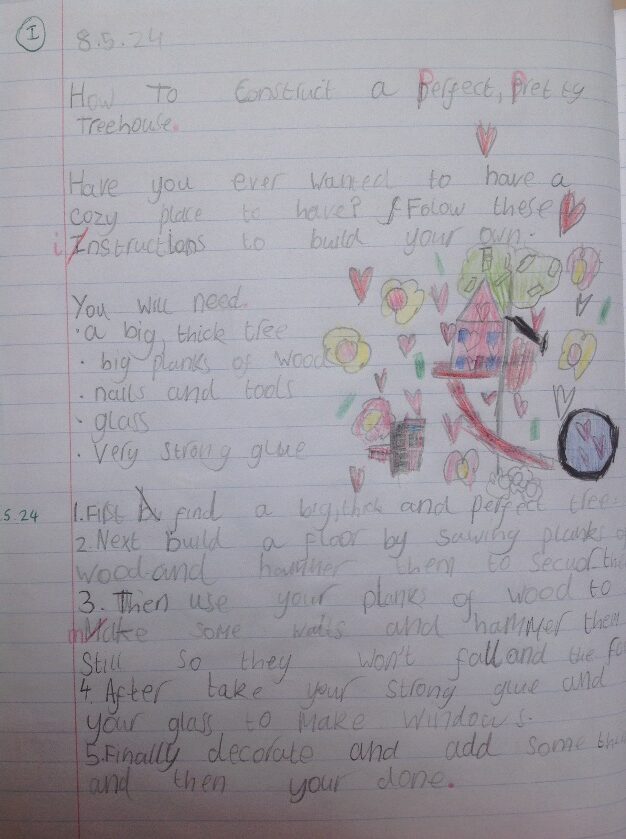 I
8.5.24
How To Construct a Perfect, Pretty
Treehouse.
Have you ever wanted to have a
cozy place to have? Folow these
instructions to build your own.
You will need
· a big, thick tree
· big planks of wood
· nails and tools
· glass
· Very strong glue
5.24
1. First find a big, thick and perfect tree.
2. Next build a floor by sawing planks of
wood and hammer them to
3. Then use your planks of wood to
make some walls and hammer them
Still so they won't fall and the
4. After take your strong glue and
your glass to Make windows.
5. Finally decorate and add some
and then your done.